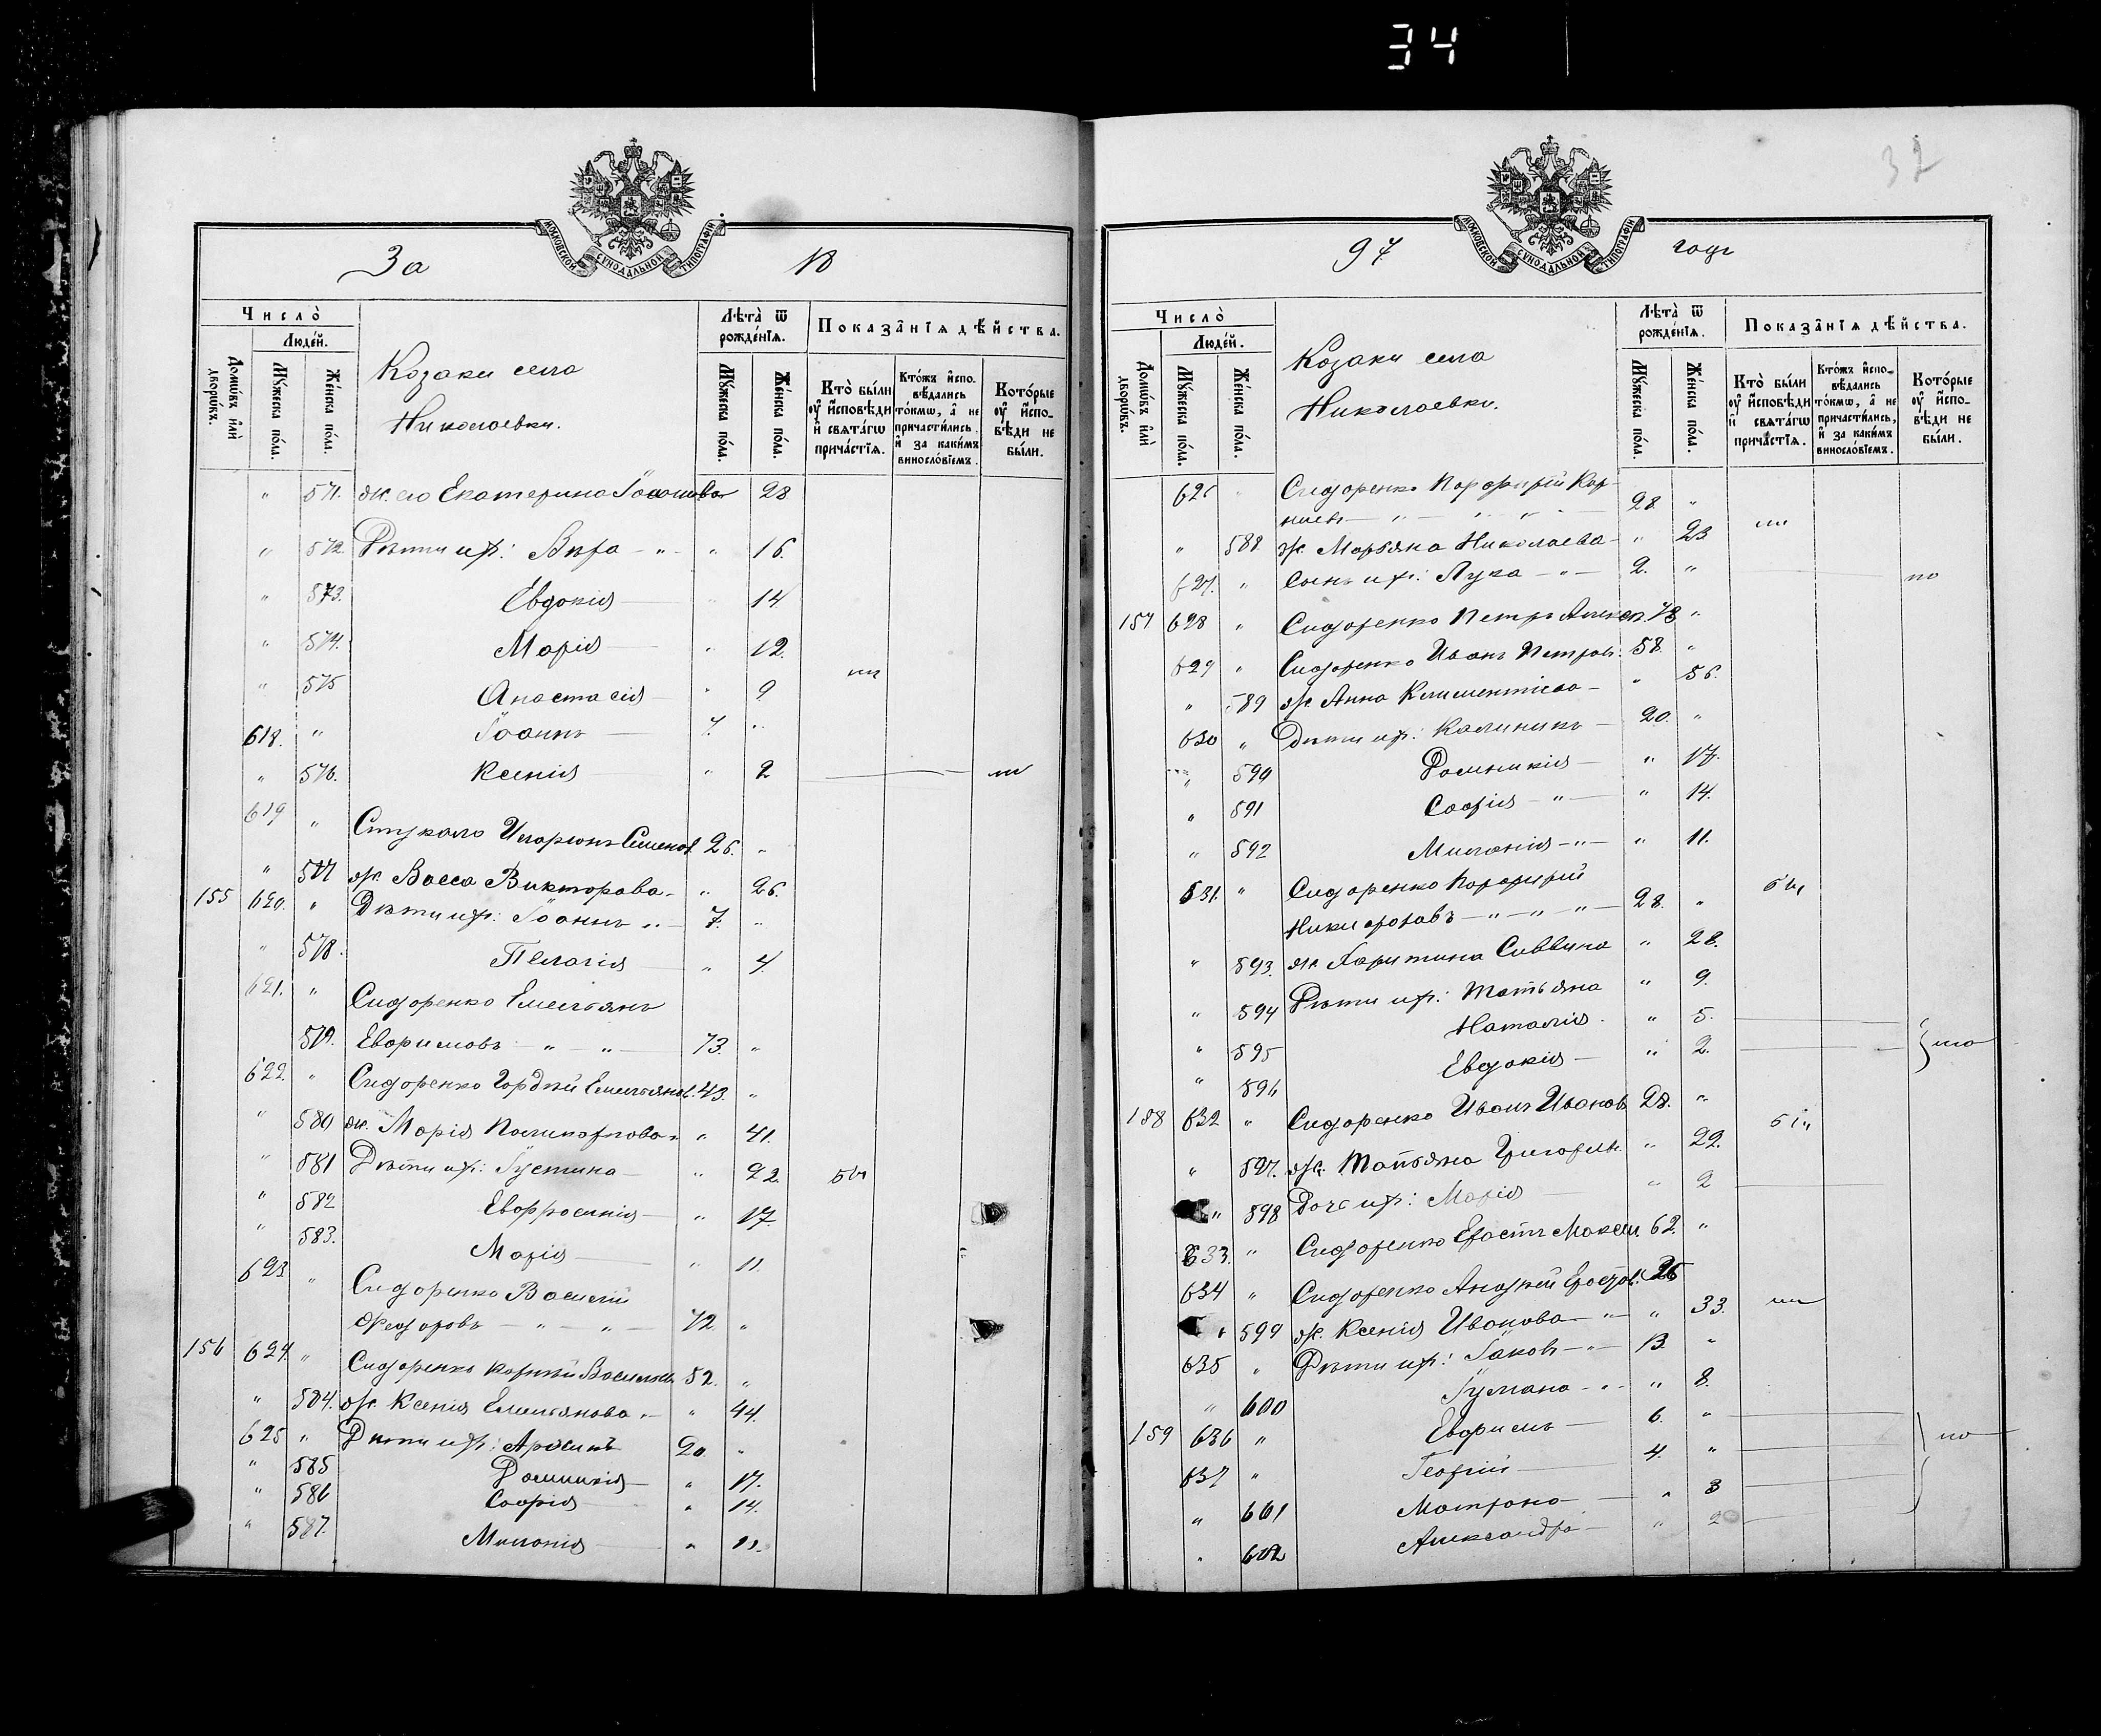 34
32
МОСКОВСКОЙ СУНОДАЛЬНОЙ ТИПОГРАФІИ
За 18
Число̀
Людей.
Домѡвъ или дворѡвъ.
Мꙋжеска пола.
Женска пола.
Козаки села
Николаевки.
Лѣта̀ ѿ рожденїѧ.
Мꙋжеска пола.
Женска пола.
Показанїѧ дѣйства.
Кто̀ были ᲂу҆ и҆сповѣди и҆ свѧтагѡ причастїѧ.
Ктожъ и҆сповѣдались токмѡ, а҆ не причастились. и҆ за какимъ винословїемъ.
Которые ᲂу҆ и҆споᲂвѣди не были.
" 571. ж. его Екатерина Іоаннова 28
" 572 Дѣти их: Вѣра - " - " 16.
" 573. Евдокія " 14
" 574. Марія " 12.
" 575 Анастасія " 9
618. " Іоаннъ 7. "
" 576. Ксенія " 2
619 " Стукало Иларіонъ Семенов. 26. "
" 577 ж. Васса Викторова - " 26.
155 620. " Дѣти их: Іоаннъ " - 7. "
" 578. Пелагія " 4
621. " Сидоренко Емельянъ
579. Евфимовъ - " - " - 73. "
622. " Сидоренко Гордѣй Емельянов. 43. "
" 580 ж. Марія Поликарпова " " 41.
" 581 Дѣти их: Іустина " 22.
" 582 Евфросинія " 17
" 583. Марія " 11.
623 " Сидоренко Василій
Ѳедоровъ - " - " - 72 "
156 624. " Сидоренко Корнѣй Васильев 52. "
" 584. ж. Ксенія Емельянова " - " 44.
625 " Дѣти их: 20. "
" 585 Домникія " 17.
" 586 Софія " 14.
" 587. Миланія " 11.
97 годъ
МОСКОВСКОЙ СУНОДАЛЬНОЙ ТИПОГРАФІИ
Число̀
Людей.
Домѡвъ или дворѡвъ.
Мꙋжеска пола.
Женска пола.
Козаки села
Николаевки.
Лѣта̀ ѿ рожденїѧ.
Мꙋжеска пола.
Женска пола.
Показанїѧ дѣйства.
Кто̀ были ᲂу҆ и҆сповѣди и҆ свѧтагѡ причастїѧ.
Ктожъ и҆сповѣдались токмѡ, а҆ не причастились, и҆ за какимъ винословїемъ.
Которые ᲂу҆ и҆сповѣди не были.
626 " Сидоренко Порфирій Кор-
ніевъ - " - " - " - 28 "
" 588. ж. Маріяна Николаева - " 23
627. " Сынъ их: Лука - " - 2. "
157 628 " Сидоренко Петръ Алексѣ. 78 "
629 " Сидоренко Иванъ Петров. 58. "
" 589 ж. Анна Климентіева - " 56.
630 " Дѣти их: Калиникъ - 20. "
" 590 Домникія - " 17.
" 591 Софія - " - " 14.
" 592 Миланія - " - " 11.
631. " Сидоренко Порфирій
Никифоровъ - " - " - " - 28. "
" 593. ж. Харитина Саввина " 28.
" 594 Дѣти их: Татьяна " 9.
" 595 Наталія. " 5.
" 596 Евдокія - " 2.
158 632 " Сидоренко Иванъ Иванов 28. "
" 597. ж. Татьяна Григорьев. " 22.
" 598 Дочь их: Марія " 2
633. " Сидоренко Ерастъ Максим. 62. "
634 " Сидоренко Андрей Ерастов. 36
" 599 ж. Ксенія Иванова - " - " 33.
635 " Дѣти их: Іаковъ - " - 13. "
" 600 Іуліана - " - " 8.
159 636 " Евфимъ - 6. "
637 " Георгій 4. "
" 601 Матрона " 3
" 602 Александра - " 2